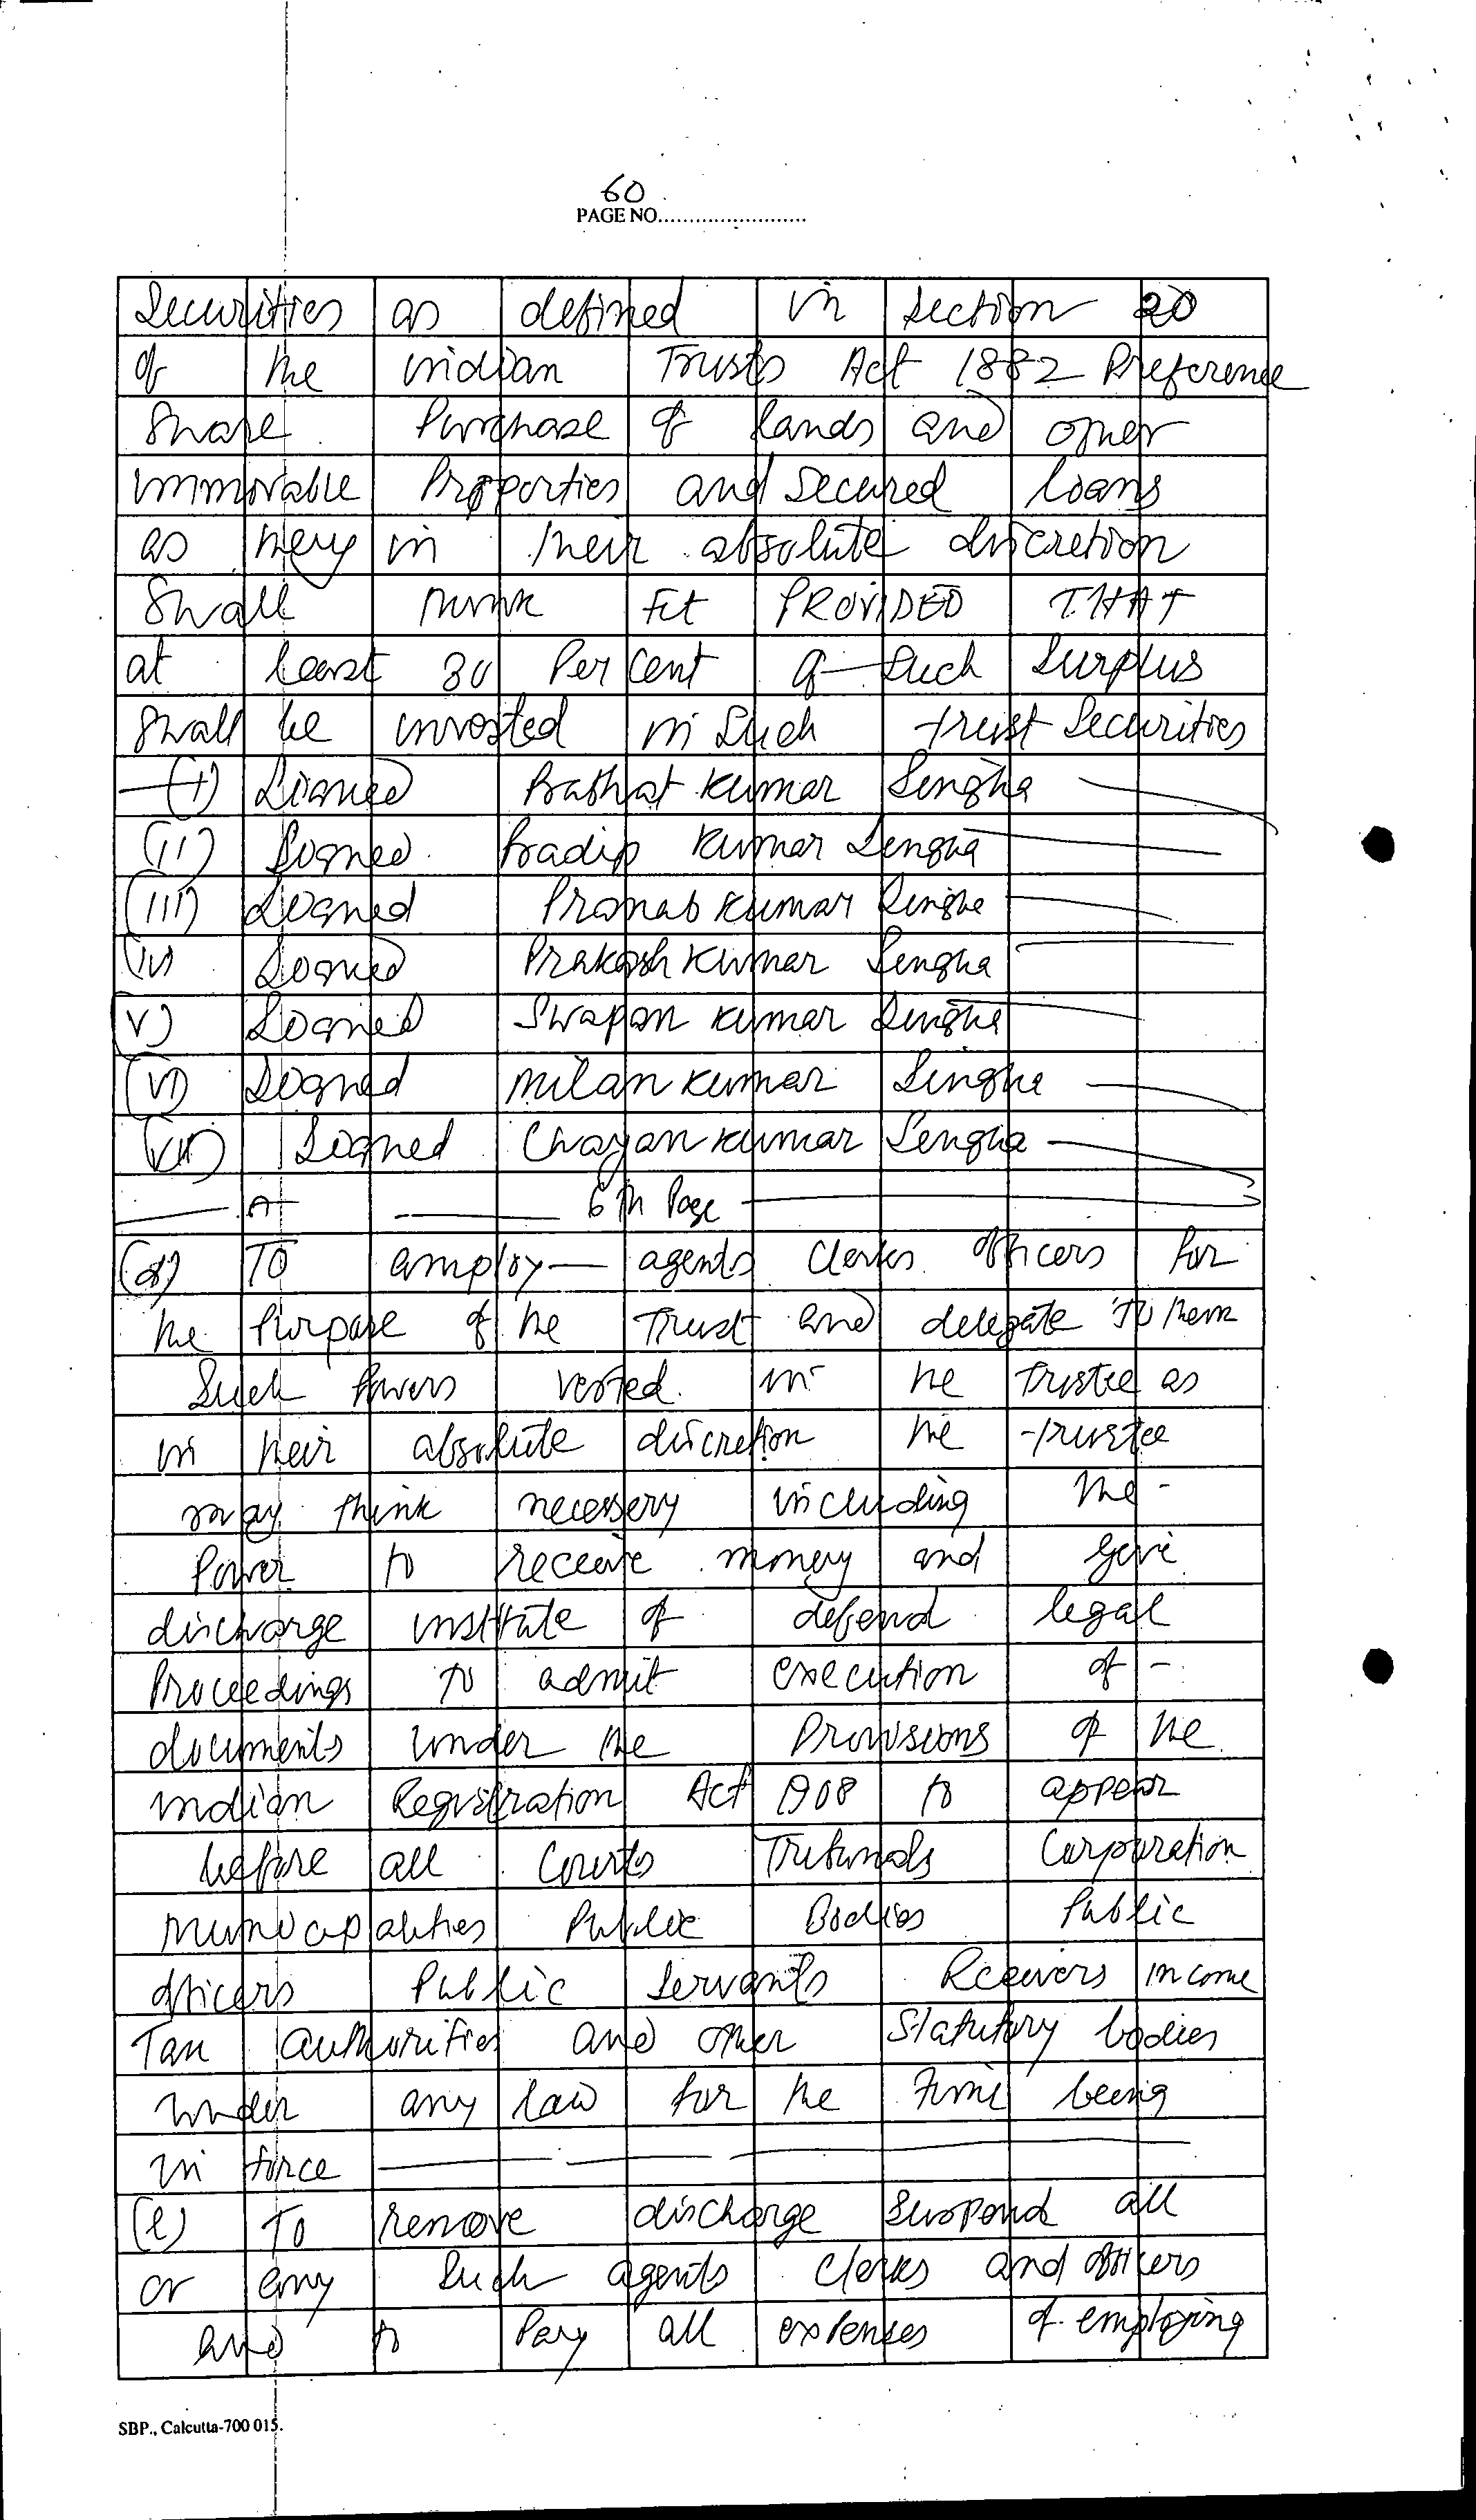 60
PAGE NO........................
Securities as defined in section 20
of the indian Trusts Act 1882 Preference
Share Purchase of lands and other
immovable Properties and secured loans
as they in their absolute discretion
Shall think Fit PROVIDED THAT
at least 30 Per cent of Such Surplus
Shall be invested in Such trust Securities
(i) Signed Prabhat Kumar Singha
(ii) Signed Pradip Kumar Singha
(iii) Signed Pranab Kumar Singha
(iv) Signed Prakash Kumar Singha
(v) Signed Swapan Kumar Singha
(vi) Signed Milan Kumar Singha
(vii) Signed Chayan Kumar Singha
At 6th Page
(d) To employ agents Clerks officers for
the Purpose of the Trust and delegate to them
Such Powers vested in the Trustee as
in their absolute discretion the trustee
may think necessary including the -
Power to receive money and give
discharge institute of defend legal
Proceedings to admit execution of -
documents under the Provisions of the
indian Registration Act 1908 to appear
before all Courts Tribunals Corporation
Municapalities Public Bodies Public
officers Public Servants Receivers income
Tax authorities and other Statutory bodies
under any law for the time being
in force
(e) To remove discharge Suspend all
or any Such agents Clerks and officers
and to Pay all expenses of employing
SBP., Calcutta-700 015.